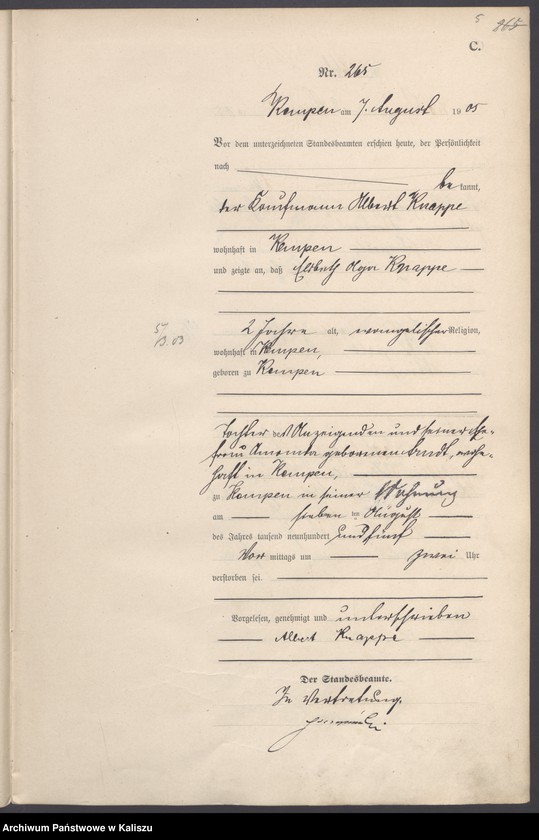 5 265
C.
Nr. 265
Kempen am 7. August 1905
Vor dem unterzeichneten Standesbeamten erschien heute, der Persönlichkeit
nach
be kannt,
der Kaufmann Albert Knappe
wohnhaft in Kempen
und zeigte an, daß Elsbeth Olga Knappe
2 Jahre alt, evangelischer Religion,
5/
wohnhaft in Kempen,
geboren zu Kempen
Tochter des Anzeigenden und seiner Ehe-
frau Amanda geborenen Arndt, wohn-
haft in Kempen,
zu Kempen in seiner Wohnung
am sieben ten August
des Jahres tausend neunhundert und fünf
Vor mittags um zwei Uhr
verstorben sei.
Vorgelesen, genehmigt und unterschrieben
Albert Knappe
Der Standesbeamte.
In Vertretung.
Archiwum Państwowe w Kaliszu